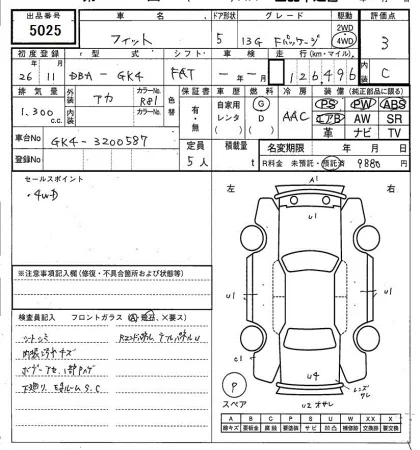 出品番号 車名 ドア形状 グレード 駆動 評価点
5025 フィット 5 13G Fパッケージ 2WD 4WD 3
初度登録 型式 シフト 車検 走行(km・マイル) 内装
26 11 DBA-GK4 FAT - - 126,496 C
排気量 外装 アカ カラーNo. R81 色替 保証書 車歴 燃料 冷房 装備(純正部品に限る)
1,300 c.c. 内装 カラーNo. 有・無 自家用 レンタ ( ) G D ( ) AAC PS PW ABS
エアB AW SR
革 ナビ TV
車台No GK4-3200587 定員 5人 積載量 t 名変期限 年 月 日
登録No R料金 未預託・預託済 9880 円
セールスポイント
・4WD
左 右
A1
U1
U1 U1
C1
U4
P
スペア
レンズワレ
※注意事項記入欄(修復・不具合箇所および状態等)
検査員記入 フロントガラス
シートシミ
内張ヨゴレキズ
下廻り
A B C P S U W X XX
線キズ 要板金 腐蝕 要塗装 サビ 凹凸 補修跡 要交換 交換